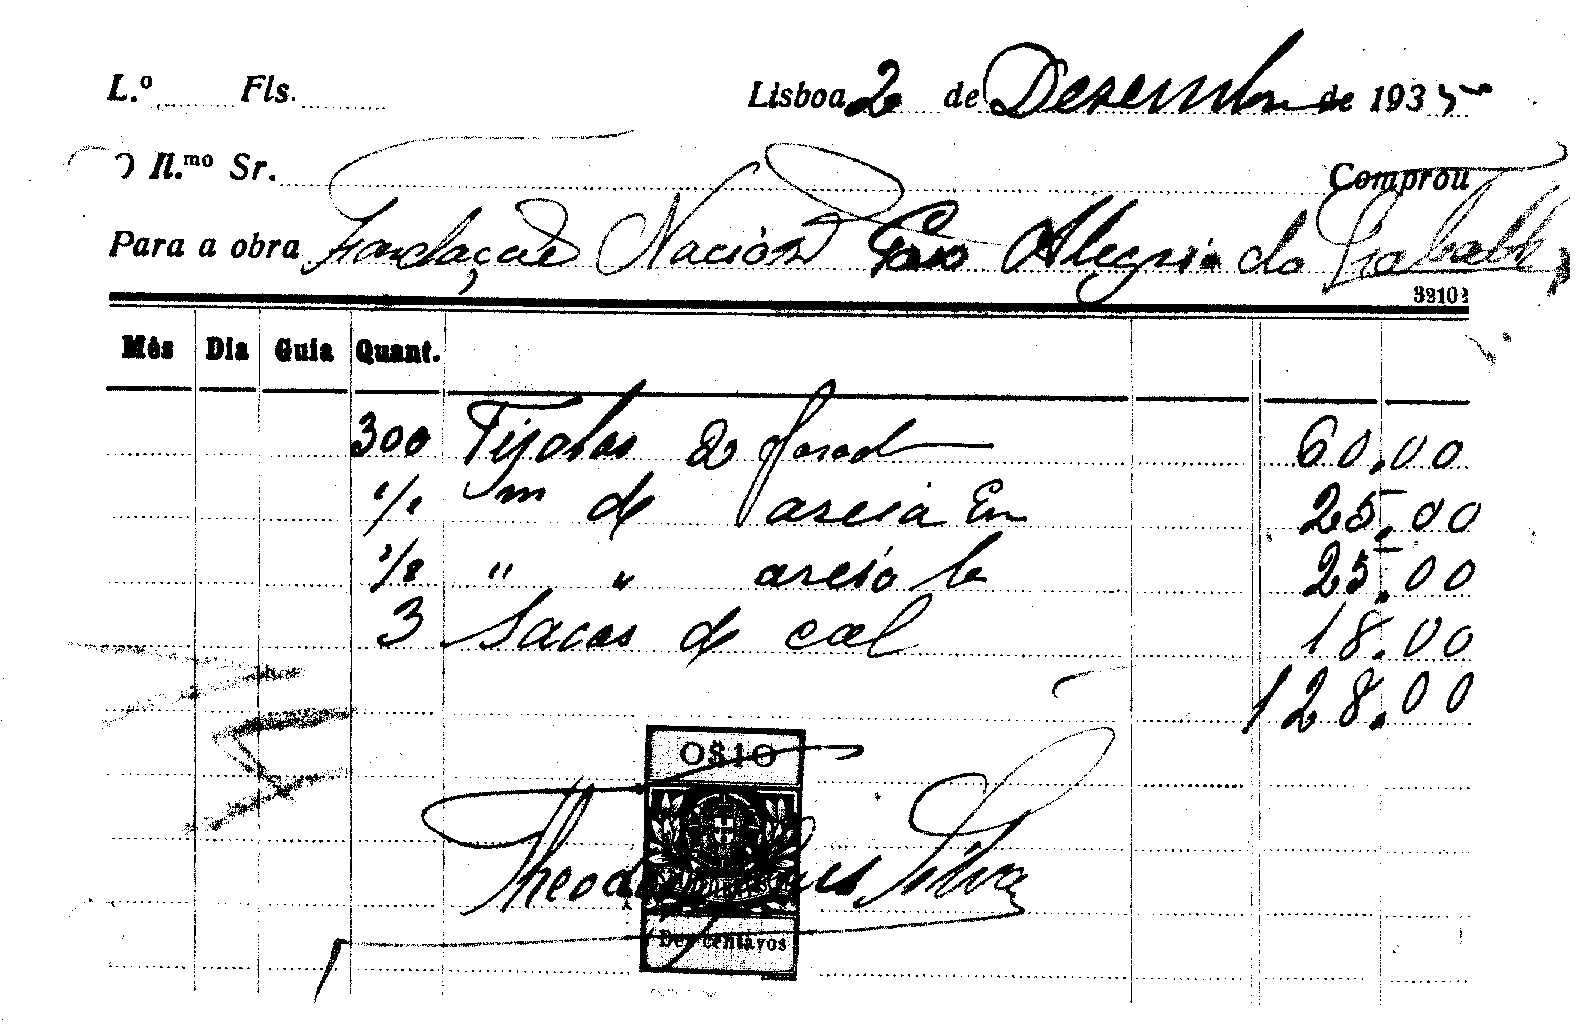 L.º Fls. Lisboa 2 de Desembro de 1935
Il.mo Sr. Comprou
Para a obra Fundação Nacional Para Alegria do Trabalho
33102
Mês Dia Guia Quant.
300 Tijolos 2 furad 60.00
1/2 m de areia En 25.00
1/2 " " areia 25.00
3 Sacos de cal 18.00
128.00
O$10
Silva
Dez centavos